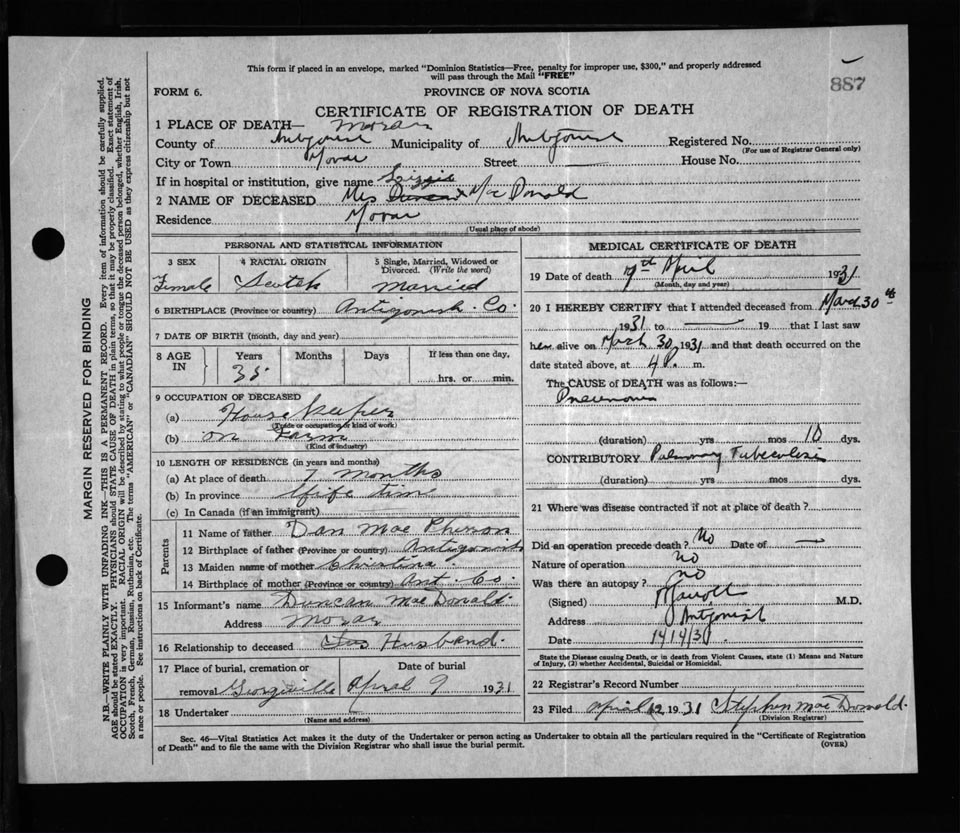 This form if placed in an envelope, marked "Dominion Statistics—Free, penalty for improper use, $300," and properly addressed
will pass through the Mail "FREE"
887
FORM 6.
PROVINCE OF NOVA SCOTIA
CERTIFICATE OF REGISTRATION OF DEATH
1 PLACE OF DEATH— Morar
County of Antigonish Municipality of Antigonish Registered No.
(For use of Registrar General only)
City or Town Morar Street — House No.
If in hospital or institution, give name Lizzie
2 NAME OF DECEASED Mrs Duncan MacDonald
Residence Morar
(Usual place of abode)
PERSONAL AND STATISTICAL INFORMATION
3 SEX 4 RACIAL ORIGIN 5 Single, Married, Widowed or Divorced. (Write the word)
Female Scotch Married
6 BIRTHPLACE (Province or country) Antigonish Co.
7 DATE OF BIRTH (month, day and year)
8 AGE IN Years Months Days If less than one day,
38 hrs. or min.
9 OCCUPATION OF DECEASED
(a) House keeper
(Trade or occupation or kind of work)
(b) on Farm
(Kind of industry)
10 LENGTH OF RESIDENCE (in years and months)
(a) At place of death 7 months
(b) In province Life time
(c) In Canada (if an immigrant)
Parents
11 Name of father Dan MacPherson
12 Birthplace of father (Province or country) Antigonish
13 Maiden name of mother Christina
14 Birthplace of mother (Province or country) Ant. Co.
15 Informant's name Duncan MacDonald
Address Morar
16 Relationship to deceased Husband.
17 Place of burial, cremation or removal Georgeville Date of burial April 9 1931
18 Undertaker
(Name and address)
MEDICAL CERTIFICATE OF DEATH
19 Date of death 7th April 1931
(Month, day and year)
20 I HEREBY CERTIFY that I attended deceased from March 30th
1931 to — 19 that I last saw
her alive on Mch 30 1931 and that death occurred on the
date stated above, at 4 P. m.
The CAUSE of DEATH was as follows:—
Pneumonia
(duration) yrs mos 10 dys.
CONTRIBUTORY Pulmonary Tuberculosis
(duration) yrs mos dys.
21 Where was disease contracted if not at place of death?
Did an operation precede death? No Date of —
Nature of operation no
Was there an autopsy? no
(Signed) M.D.
Address Antigonish
Date 14/4/31
State the Disease causing Death, or in death from Violent Causes, state (1) Means and Nature
of Injury, (2) whether Accidental, Suicidal or Homicidal.
22 Registrar's Record Number
23 Filed April 12 1931 Stephen MacDonald.
(Division Registrar)
Sec. 46—Vital Statistics Act makes it the duty of the Undertaker or person acting as Undertaker to obtain all the particulars required in the "Certificate of Registration
of Death" and to file the same with the Division Registrar who shall issue the burial permit.
(OVER)
MARGIN RESERVED FOR BINDING
N.B.—WRITE PLAINLY WITH UNFADING INK—THIS IS A PERMANENT RECORD. Every item of information should be carefully supplied.
AGE should be stated EXACTLY. PHYSICIANS should STATE CAUSE OF DEATH in plain terms, so that it may be properly classified. Exact statement of
OCCUPATION is very important. RACIAL ORIGIN will be described by stating to what people or tongue the deceased person belonged, whether English, Irish,
Scotch, French, German, Russian, Ruthenian, etc. The terms "AMERICAN" or "CANADIAN" SHOULD NOT BE USED as they express citizenship but not
a race or people. See instructions on back of Certificate.